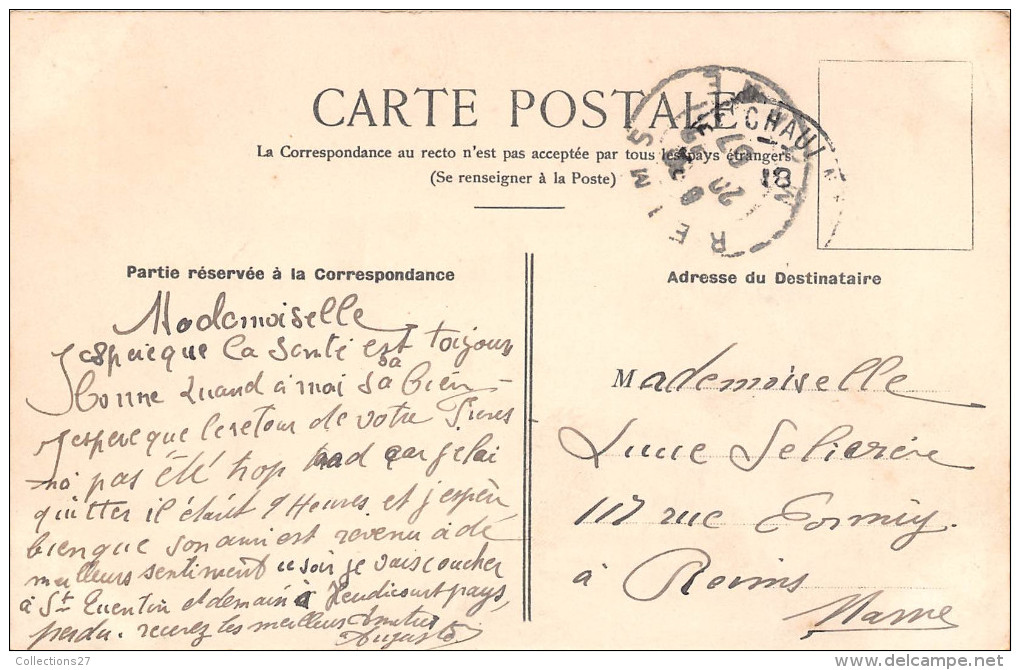 CARTE POSTALE
La Correspondance au recto n'est pas acceptée par tous les pays étrangers
(Se renseigner à la Poste)
REIMS
MARNE
20
07
18
Partie réservée à la Correspondance
Mademoiselle
J'espere que la Santé est toujours
bonne Quand a moi Sa bien
J'espere que le retour de votre Frères
na pas été trop tard car je lai
quitter il était 9 Heures et j'espère
bien que son ami est revenu à de
meilleurs sentiment ce soir je vais coucher
à St Quentin et demain à Heudicourt pays
perdu. recevez les meilleurs
Auguste
Adresse du Destinataire
Mademoiselle
Luce
117 rue
à Reims
Marne
Collections27